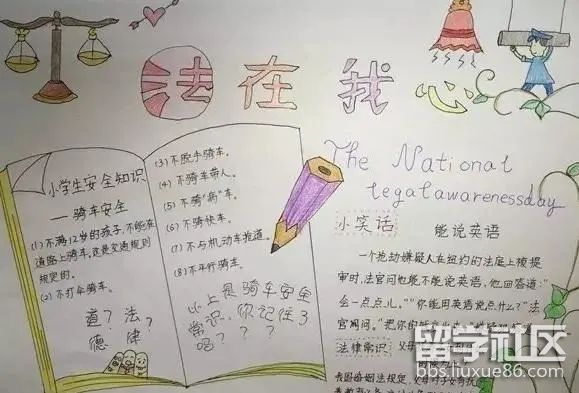 法在我心
小学生安全知识
—骑车安全
(1)不满12岁的孩子,不能在
道路上骑车,这是交通规则
规定的。
(2)不打伞骑车。
道?法?
德 律
(3)不脱手骑车。
(4)不骑车带人。
(5)不骑“病”车。
(6)不骑快车。
(7)不与机动车抢道。
(8)不平行骑车。
以上是骑车安全
常识,你记住了
吗???
The National
legalawarenessday
小笑话 能说英语
一个抢劫嫌疑人在纽约的法庭上被提
审时,法官问他能不能说英语,他回答道:“
会一点点儿。”“你能用英语说点什么?”法
官问。“把你的
法律常识
我国婚姻法规定,父母对子女有抚
留学社区
bbs.liuxue86.com